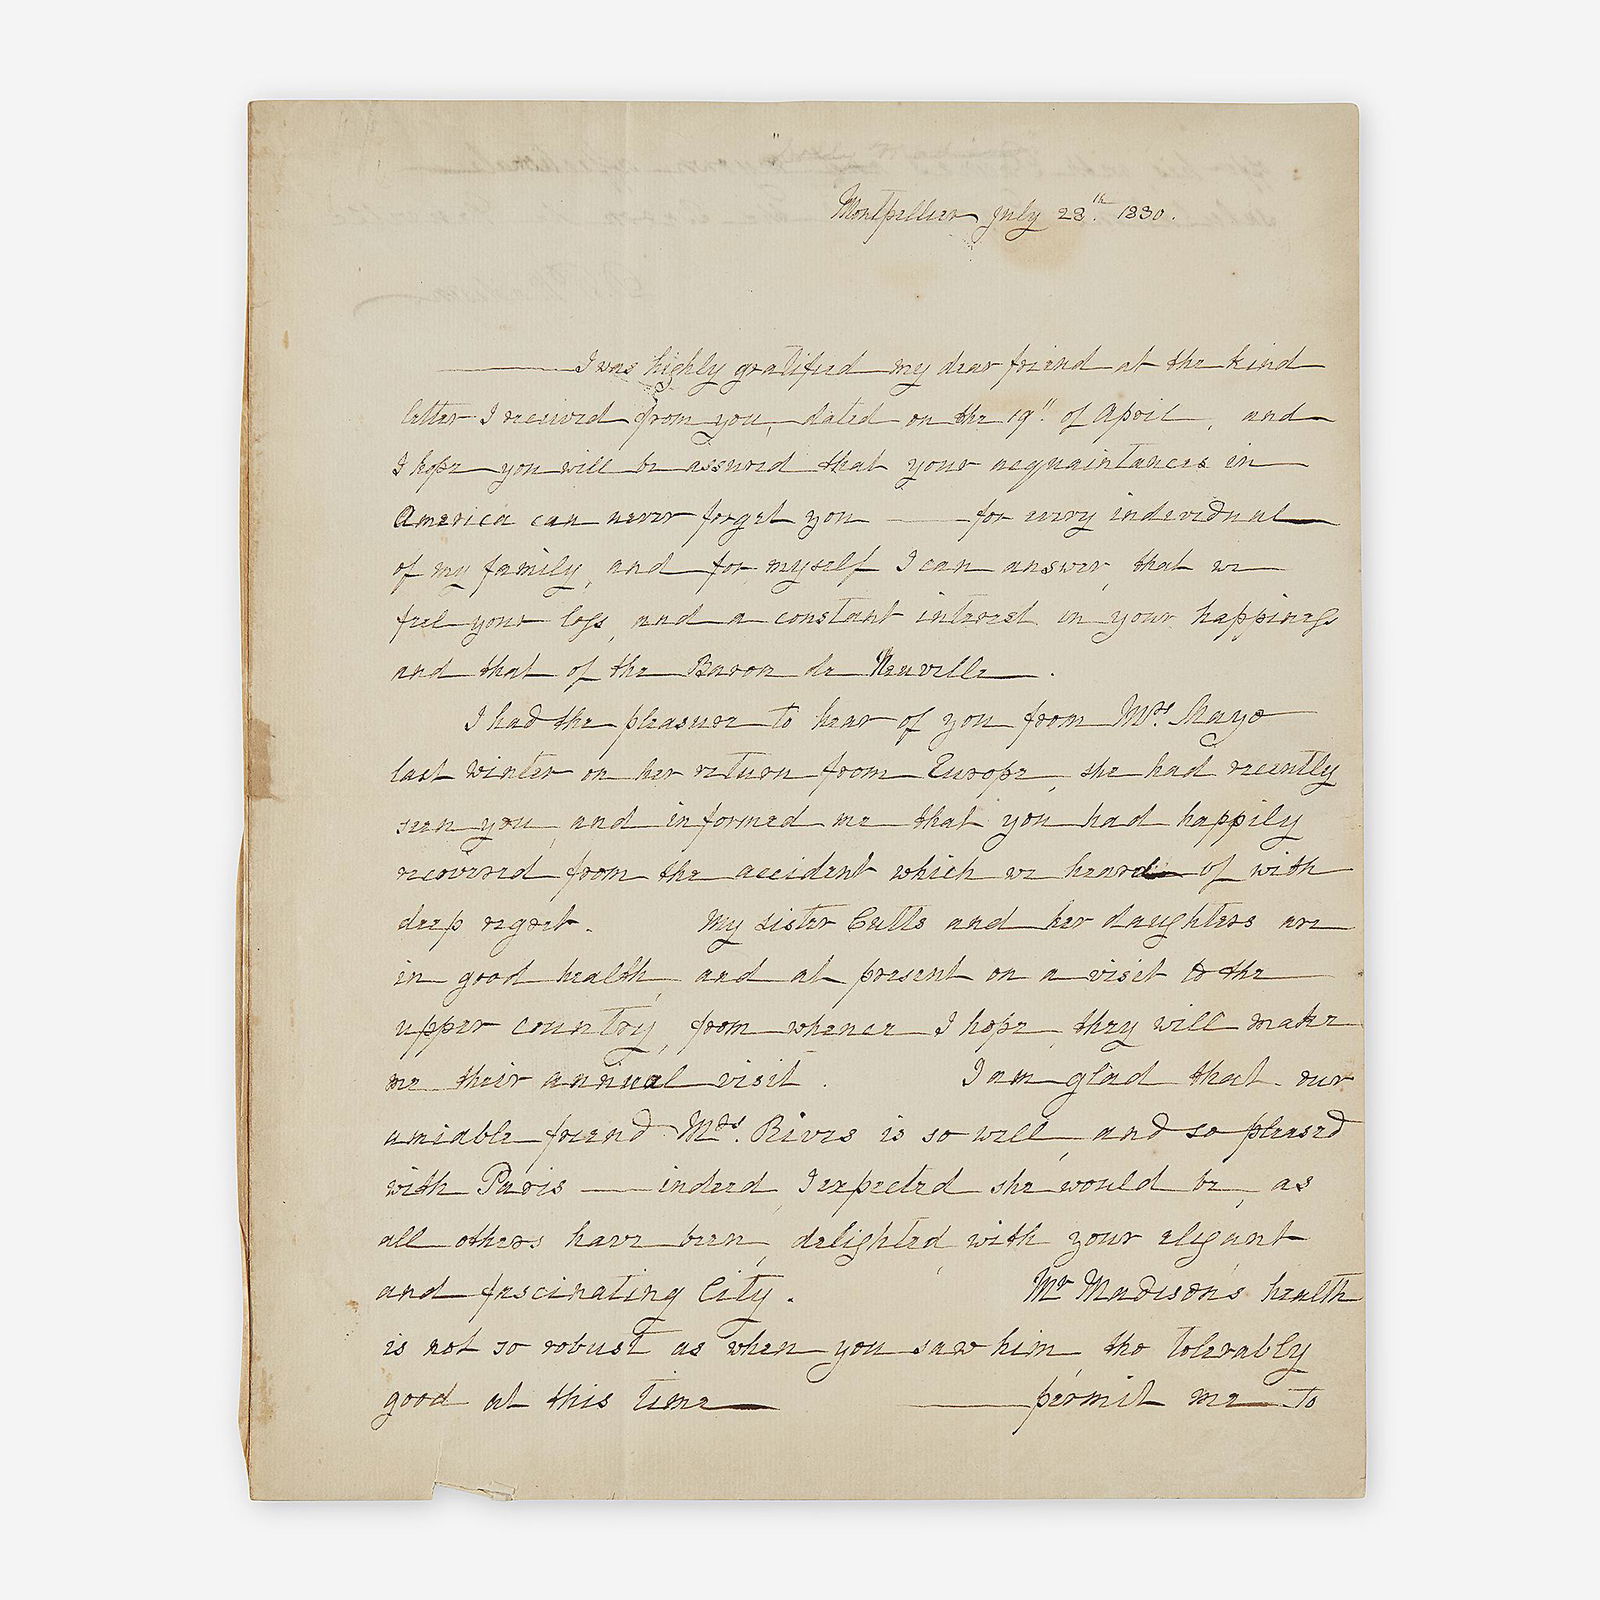 Montpellier July 28.th 1830.
I was highly gratified my dear friend at the kind
letter I received from you, dated on the 19" of April, and
I hope you will be assured that your acquaintances in
America can never forget you —— for every individual
of my family, and for myself I can answer, that we
feel your loss, and a constant interest in your happiness
and that of the Baron de Neuville.
I had the pleasure to hear of you from Mrs. Mayo
last winter on her return from Europe, she had recently
seen you, and informed me that you had happily
recovered from the accident which we heard of with
deep regret. My sister Cutts and her daughters are
in good health, and at present on a visit to the
upper country, from whence I hope, they will make
me their annual visit. I am glad that our
amiable friend Mrs. Rives is so well, and so pleased
with Paris — indeed, I expected she would be, as
all others have been, delighted, with your elegant
and fascinating City. Mr Madison's health
is not so robust as when you saw him, tho tolerably
good at this time — permit me to